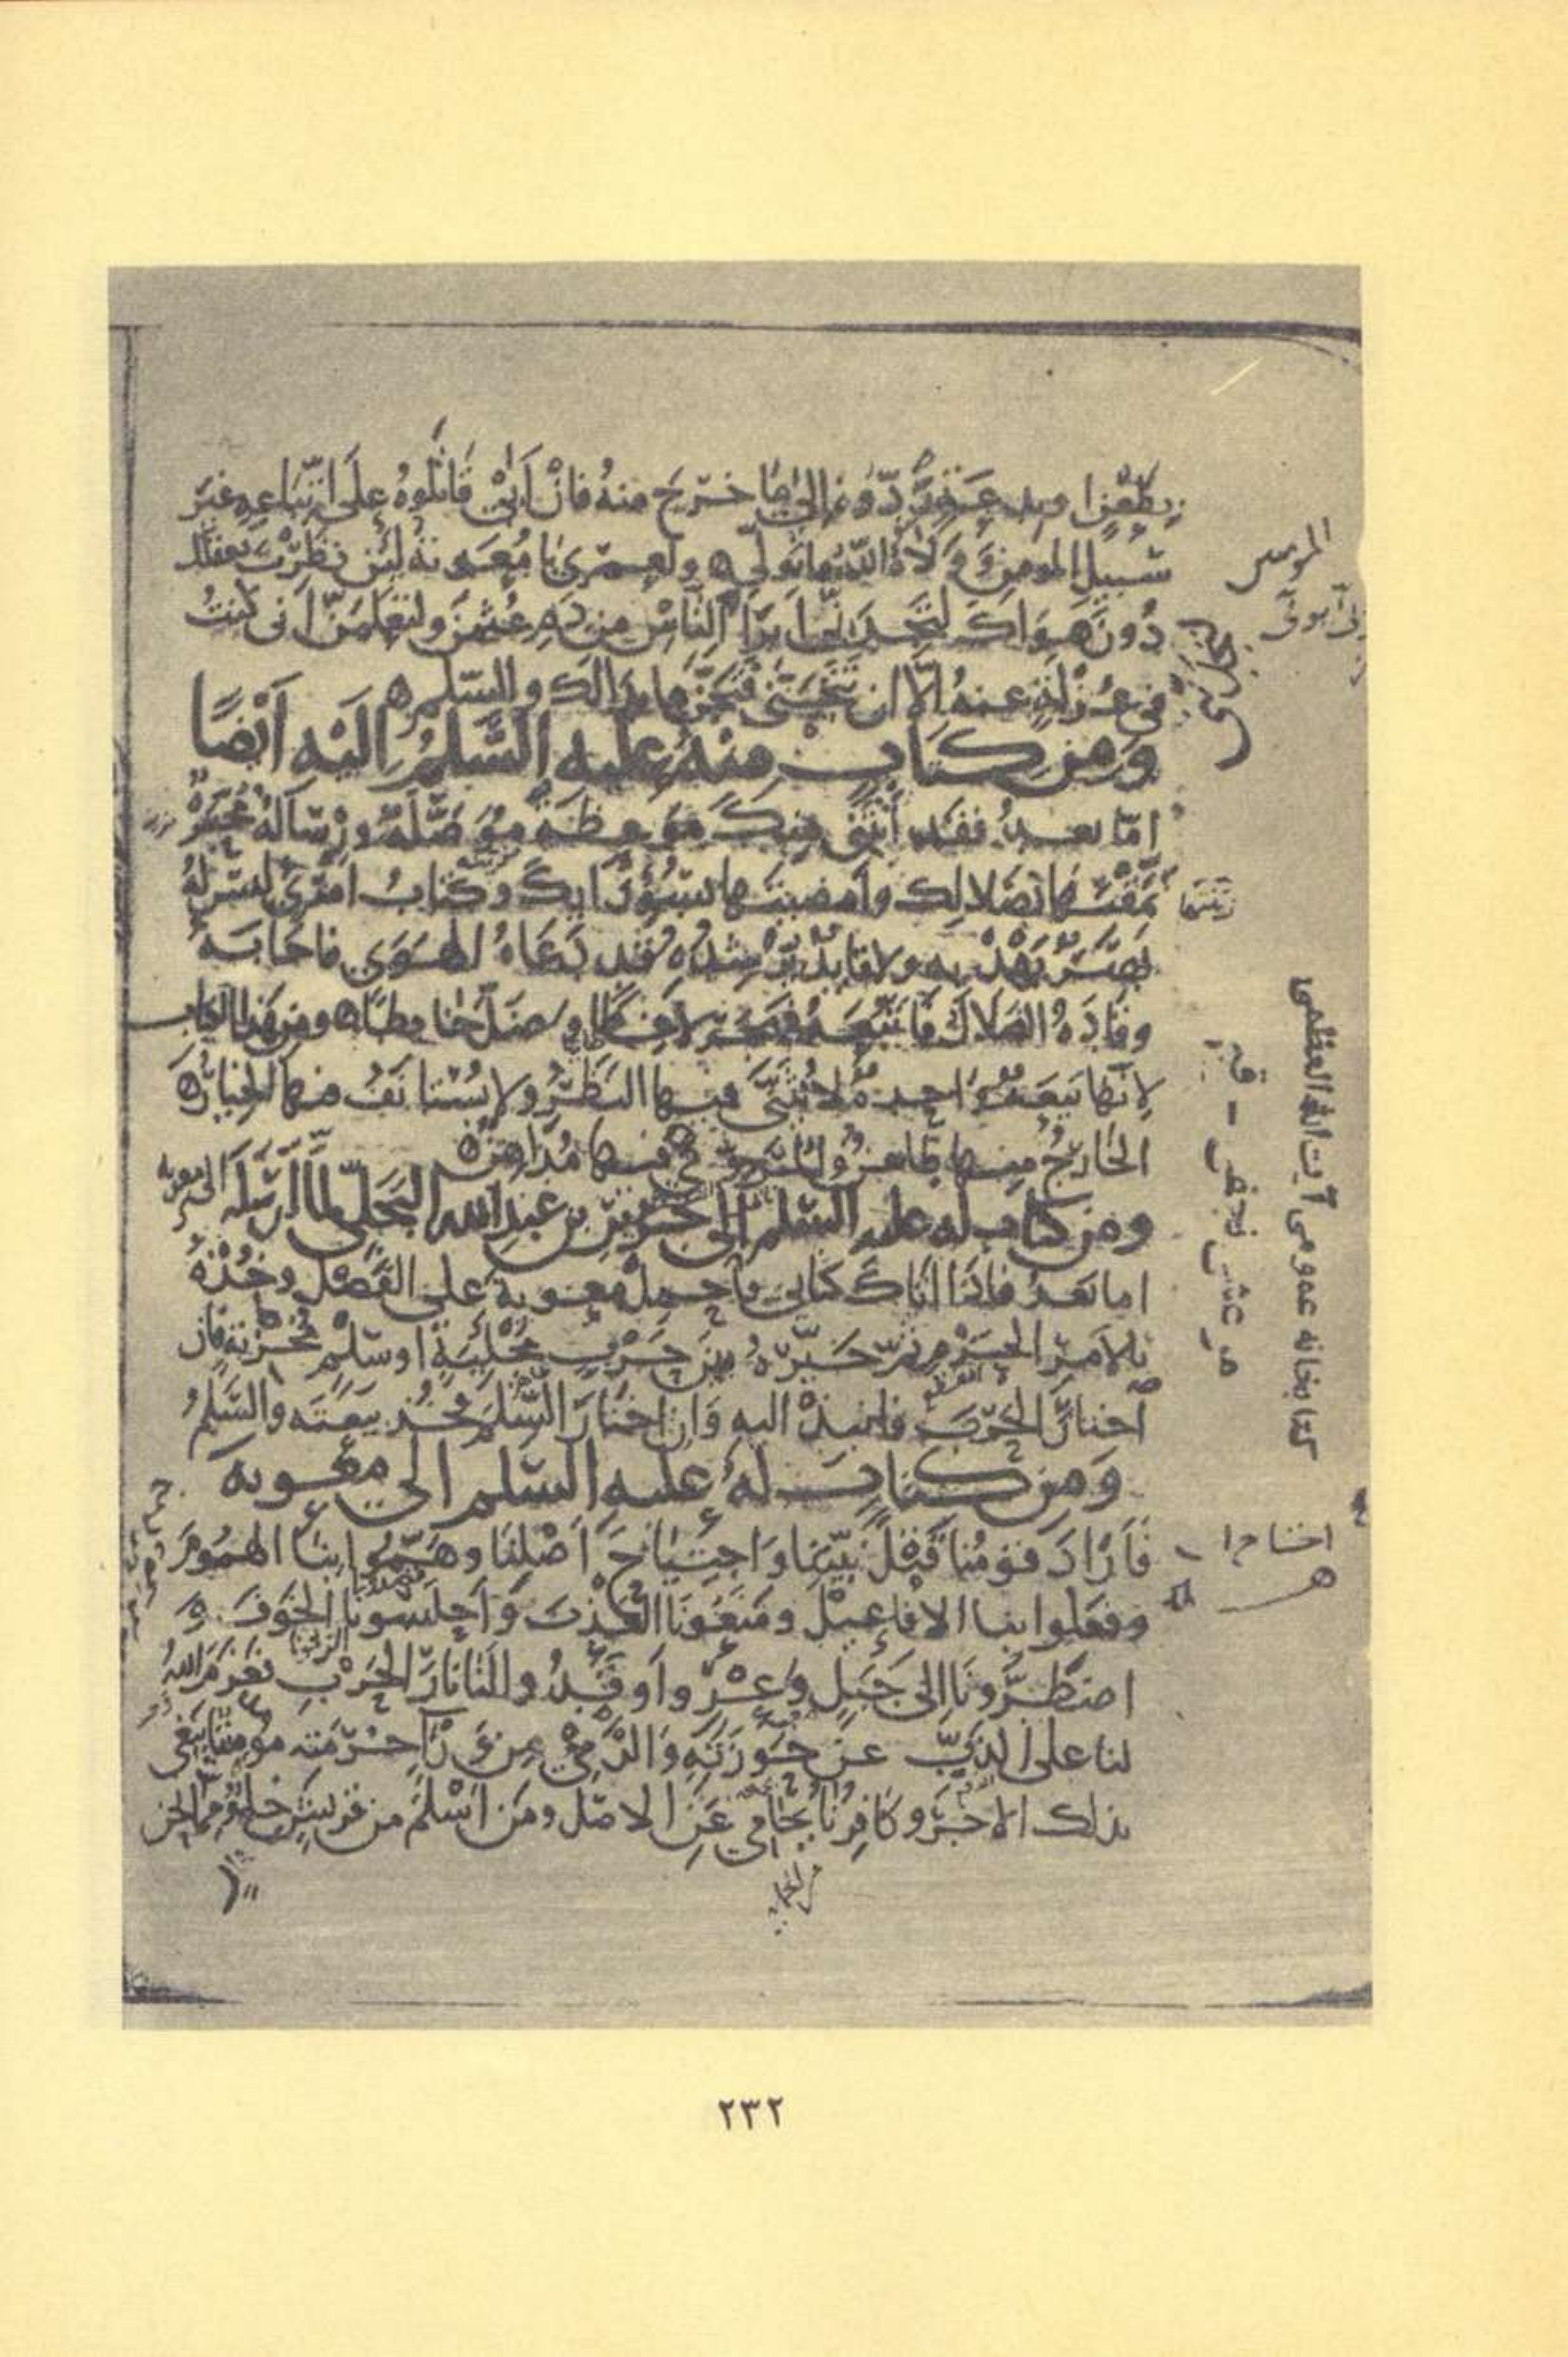 بطعن او بدعة ردوه الى ما خرج منه فان ابى قاتلوه على اتباعه غير
سبيل المومنين و ولاه الله ما تولى ولعمرى يا معويه لئن نظرت بعقلك
دون هواك لتجدنى ابرا الناس من دم عثمن ولتعلمن انى كنت
فى عزلة عنه الا ان تتجنى فتجن ما بدا لك والسلم
ومن كتاب منه عليه السلم اليه ايضا
اما بعد فقد اتتنى منك موعظة موصلة ورسالة محبرة
نمقتها بضلالك وامضيتها بسوء رايك وكتاب امرئ ليس له
بصر يهديه ولا قايد يرشده قد دعاه الهوى فاجابه
وقاده الضلال فاتبعه فهجر لاغطا وضل خابطا ومن هذا الكتاب
لانها بيعة واحدة لا يثنى فيها النظر ولا يستانف فيها الخيار
الخارج منها طاعن والمروى فيها مداهن
ومن كتاب له عليه السلم الى جرير بن عبد الله البجلى لما ارسله الى معويه
اما بعد فاذا اتاك كتابى فاحمل معوية على الفصل وخذه
بالامر الجزم ثم خيره بين حرب مجلية او سلم مخزية فان
اختار الحرب فانبذ اليه وان اختار السلم فخذ بيعته والسلم
ومن كتاب له عليه السلم الى معوية
فاراد قومنا قتل نبينا واجتياح اصلنا وهموا بنا الهموم
وفعلوا بنا الافاعيل ومنعونا العذب واحلسونا الخوف و
اضطرونا الى جبل وعر واوقدوا لنا نار الحرب فعزم الله
لنا على الذب عن حوزته والرمى من ورا حرمته مومننا يبغى
بذلك الاجر وكافرنا يحامى عن الاصل ومن اسلم من قريش خلو مما نحن
كتابخانه عمومى آيت الله العظمى
مرعشى نجفى - قم
٢٣٢